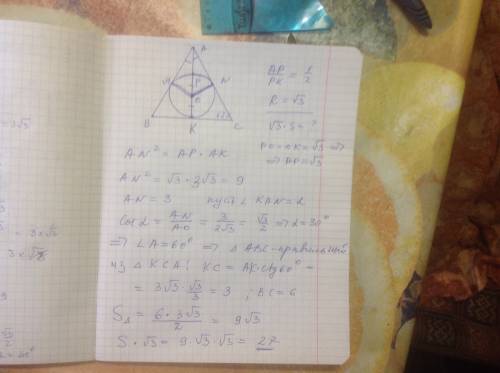 A
M
P
N
O
B
K
C
AP/PK = 1/2
R = √3
√3·S = ?
PO = OK = √3 ⇒
⇒ AP = √3
AN² = AP · AK
AN² = √3 · 3√3 = 9
AN = 3 пусть ∠KAN = α
cos α = AN/AO = 3/2√3 = √3/2 ⇒ α = 30°
⇒ ∠A = 60° ⇒ Δ ABC - правильный
из Δ KCA: KC = AK · ctg 60° =
= 3√3 · √3/3 = 3 ; BC = 6
S△ = 6 · 3√3/2 = 9√3
S · √3 = 9 · √3 · √3 = 27
= 3√3
= 3√3